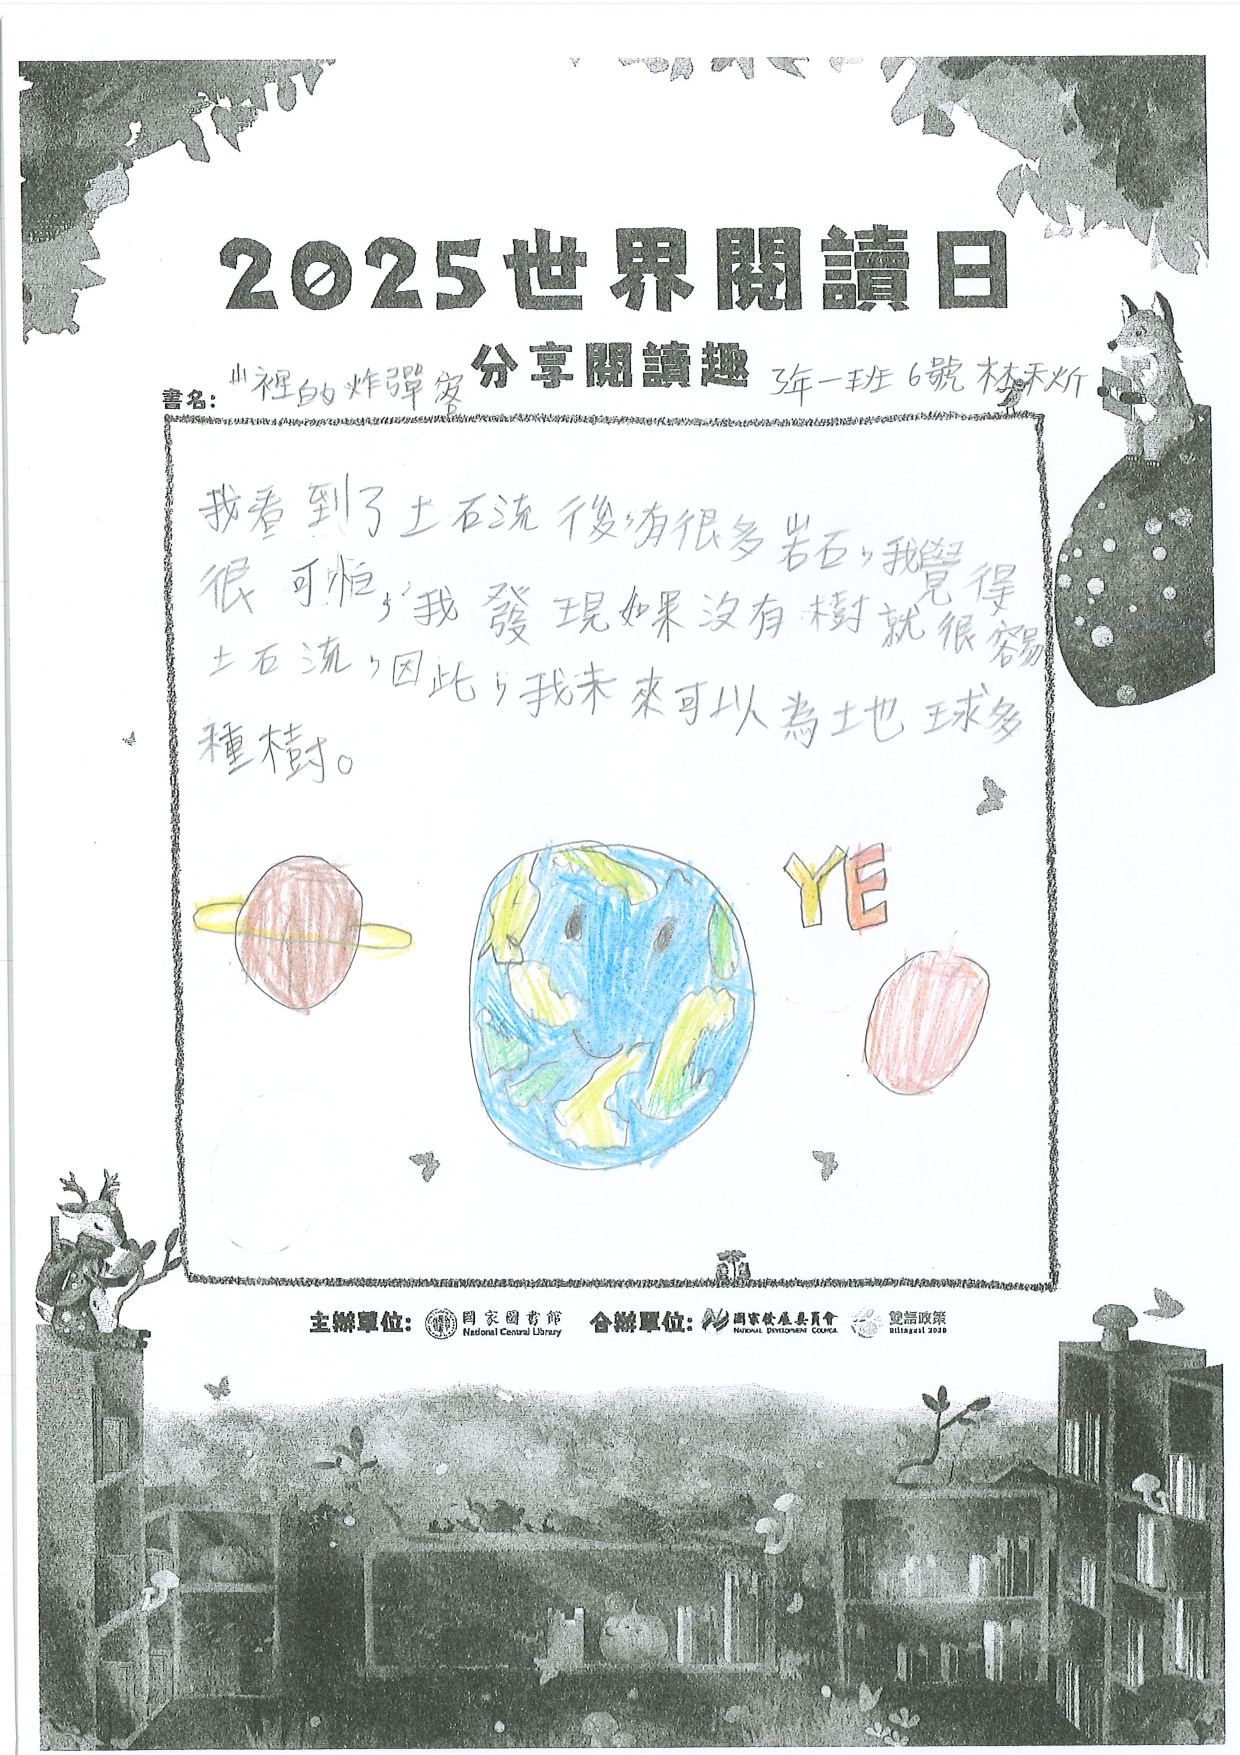 2025世界閱讀日
分享閱讀趣
書名: 山裡的炸彈客
3年一班 6號 林禾炘
我看到了土石流後,有很多岩石,我覺得
很可怕,我發現如果沒有樹就很容易
土石流,因此,我未來可以為土也球多
種樹。
YE
主辦單位: 國家圖書館 National Central Library 合辦單位: 國家發展委員會 NATIONAL DEVELOPMENT COUNCIL 雙語政策 Bilingual 2030